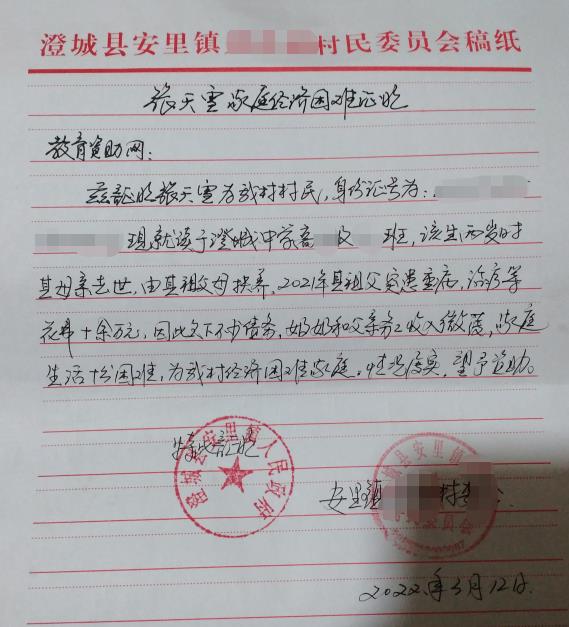 澄城县安里镇 村民委员会稿纸
张天雪家庭经济困难证明
教育资助网:
兹证明张天雪为我村村民,身份证号为:
现就读于澄城中学高 级 班,该生两岁时
其母亲去世,由其祖父母抚养,2021年其祖父突患重病,治疗等
花费十余万元,因此欠下不少债务,奶奶和父亲务工收入微薄,家庭
生活十分困难,为我村经济困难家庭。情况属实,望予资助。
特此证明
澄城县安里镇人民政府
安里镇 村委会
澄城县安里镇
村民委员会
2022年3月12日